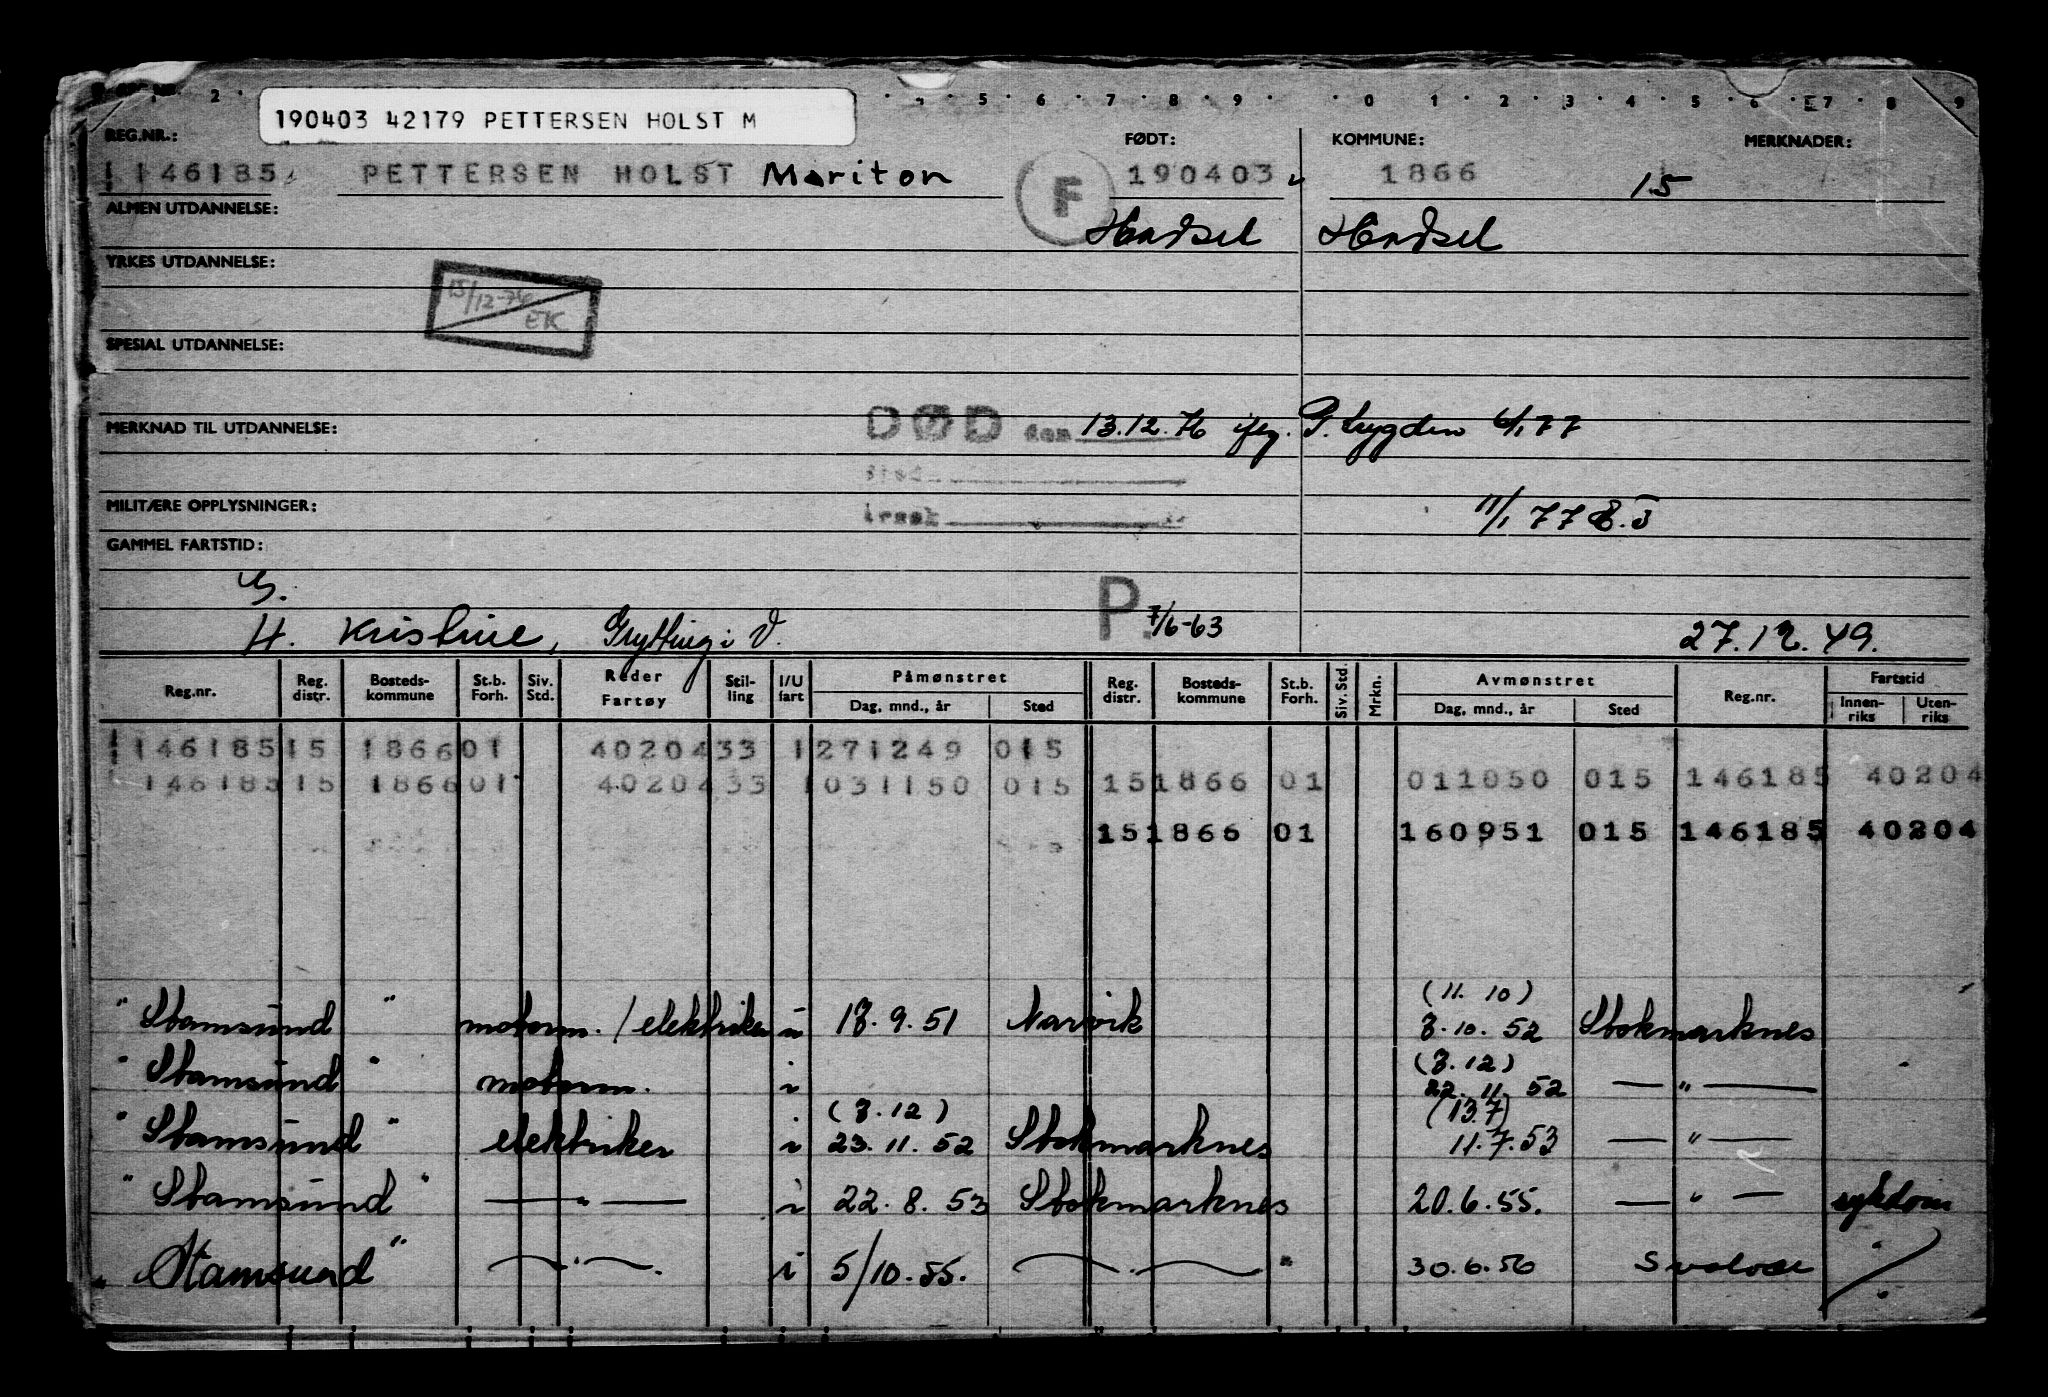 2 · · 4 · 5 · 6 · 7 · 8 · 9 · · 0 · 1 · 2 · 3 · 4 · 5 · 6 · 7 · 8 · 9
190403 42179 PETTERSEN HOLST M
REG.NR.: FØDT: KOMMUNE: MERKNADER:
146185 PETTERSEN HOLST Mariton F 190403 1866 15
ALMEN UTDANNELSE: Hadsel Hadsel
YRKES UTDANNELSE:
15/12-76
EK
SPESIAL UTDANNELSE:
MERKNAD TIL UTDANNELSE: DØD den 13.12.76 iflg. P. trygden 6/1 77
sted
MILITÆRE OPPLYSNINGER: 11/1 77
GAMMEL FARTSTID:
G.
H. Kristine, Grytting i V. P. 7/6-63 27.12.49.
Reg.nr. Reg. distr. Bosteds-kommune St.b. Forh. Siv. Std. Reder Fartøy Stil-ling I/U fart Påmønstret Dag, mnd., år Sted Reg. distr. Bosteds-kommune St.b. Forh. Siv. Std. Mrkn. Avmønstret Dag, mnd., år Sted Reg.nr. Fartstid Innen-riks Uten-riks
146185 15 1866 01 40204 33 1 271249 015
146185 15 1866 01 40204 33 1 031150 015 15 1866 01 011050 015 146185 40204
15 1866 01 160951 015 146185 40204
(11. 10)
" Stamsund " motorm. / elektriker u 18.9.51 Narvik 8.10. 52 Stokmarknes
(8.12)
" Stamsund " motorm. i 22.11.52 — " —
(8.12) (13.7)
" Stamsund " elektriker i 23.11.52 Stokmarknes 11.7.53 — " —
" Stamsund " — " — i 22.8.53 Stokmarknes 20.6.55. — " — sykdom
" Stamsund " — " — i 5/10.55. — " — 30.6.56 Svolvær ·/·